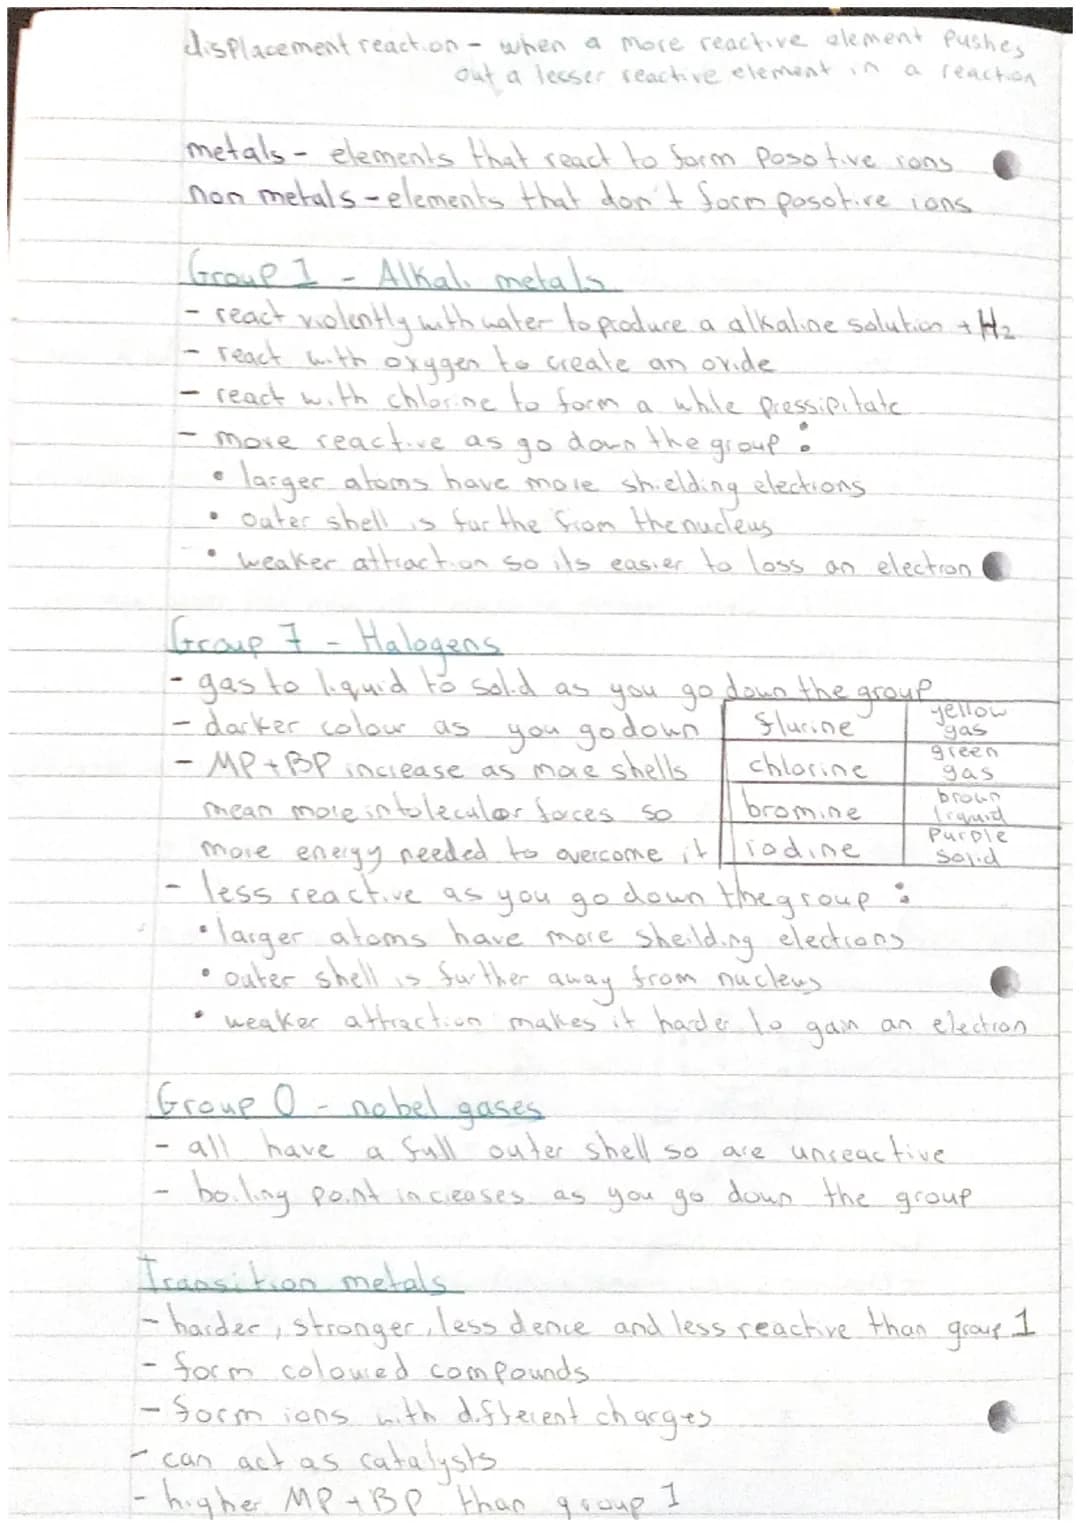 displacement reaction - when a more reactive element pushes
out a lesser reactive element in a reaction
metals - elements that react to form posotive ions
non metals - elements that don't form posotive ions
Group 1 - Alkali metals
- react violently with water to produce a alkaline solution + H2
- react with oxygen to create an oxide
- react with chlorine to form a white pressipitate
- more reactive as go down the group :
• larger atoms have more shielding electrons
• outer shell is further from the nucleus
• weaker attraction so its easier to loss an electron
Group 7 - Halogens
- gas to liquid to solid as you go down the group
- darker colour as you go down
- MP + BP increase as more shells
mean more intolecular forces so
more energy needed to overcome it
flurine yellow gas
chlorine green gas
bromine brown liquid
iodine purple solid
- less reactive as you go down the group :
• larger atoms have more sheilding electrons
• outer shell is further away from nucleus
• weaker attraction makes it harder to gain an electron
Group 0 - nobel gases
- all have a full outer shell so are unreactive
- boiling point increases as you go down the group
Transition metals
- harder, stronger, less dence and less reactive than group 1
- form coloured compounds
- form ions with different charges
- can act as catalysts
- higher MP + BP than group 1